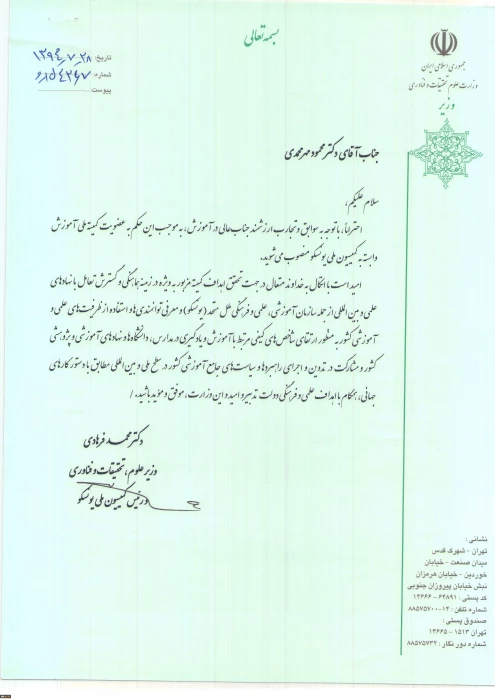 بسمه تعالی
جمهوری اسلامی ایران
وزارت علوم تحقیقات و فناوری
وزیر
تاریخ: ۱۳۹۴/۷/۲۸
شماره:
پیوست:
جناب آقای دکتر محمود مهرمحمدی
سلام علیکم،
احتراماً، با توجه به سوابق و تجارب ارزشمند جناب‌عالی در آموزش، به موجب این حکم به عضویت کمیته ملی آموزش
وابسته به کمیسیون ملی یونسکو منصوب می‌شوید.
امید است با اتکال به خداوند متعال در جهت تحقق اهداف کمیته مزبور به ویژه در زمینه هماهنگی و گسترش تعامل با نهادهای
علمی و بین المللی از جمله سازمان آموزشی، علمی و فرهنگی ملل متحد (یونسکو) و معرفی توانمندی‌ها و استفاده از ظرفیت‌های علمی و
آموزشی کشور به منظور ارتقای شاخص‌های کیفی مرتبط با آموزش و یادگیری در مدارس، دانشگاه‌ها و نهادهای آموزشی و پژوهشی
کشور و مشارکت در تدوین و اجرای راهبردها و سیاست‌های جامع آموزشی کشور در سطح ملی و بین المللی مطابق با دستورکارهای
جهانی، همگام با اهداف علمی و فرهنگی دولت تدبیر و امید و این وزارت، موفق و مؤید باشید. /
دکتر محمد فرهادی
وزیر علوم، تحقیقات و فناوری
و رئیس کمیسیون ملی یونسکو
نشانی:
تهران - شهرک قدس
میدان صنعت - خیابان
خوردین - خیابان هرمزان
نبش خیابان پیروزان جنوبی
کد پستی: ۶۳۸۹۱ - ۱۴۶۶۶
شماره تلفن: ۱۴-۸۸۵۷۵۷۰۰
صندوق پستی:
تهران ۱۵۱۳ - ۱۴۶۶۵
شماره دور نگار: ۸۸۵۷۵۷۳۲